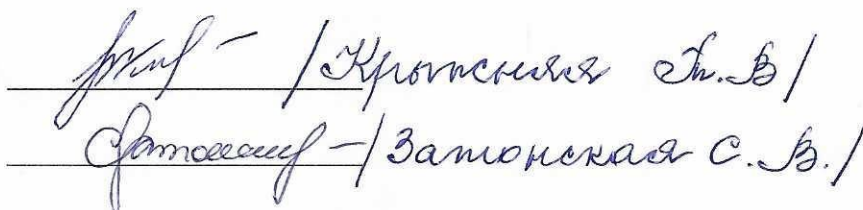 /Крыжняя Т.В/
/Затонская С.В./